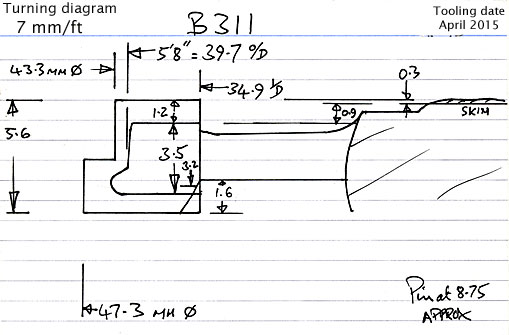 Turning diagram
7 mm/ft
B311
Tooling date
April 2015
5'8" = 39.7 O/D
43.3 MM Ø
34.9 I/D
0.3
SKIM
1.2
0.9
5.6
3.5
3.2
1.6
Pin at 8.75
APPROX
47.3 MM Ø